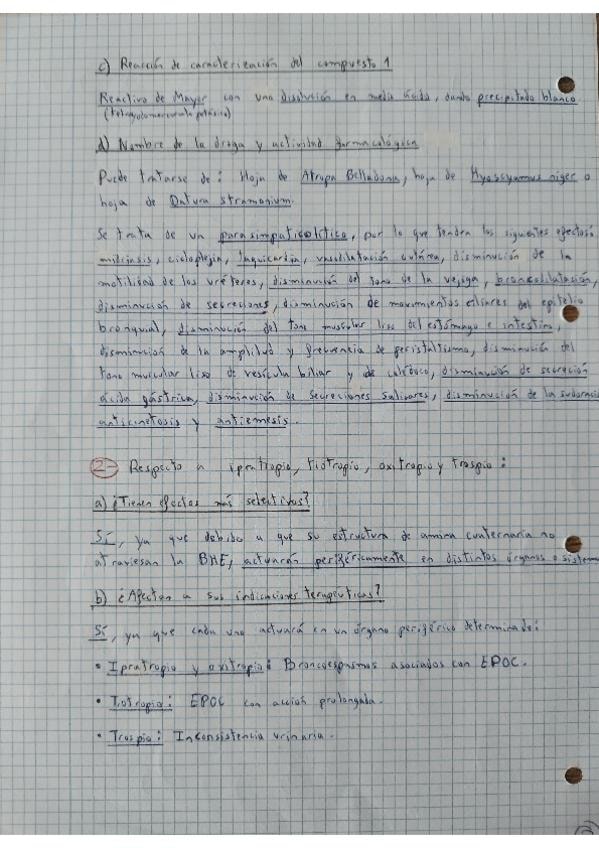 c) Reacción de caracterización del compuesto 1
Reactivo de Mayer con una disolución en medio ácido, dando precipitado blanco.
(tetrayodomercuriato potásico)
d) Nombre de la droga y actividad farmacológica
Puede tratarse de: Hoja de Atropa Belladona, hoja de Hyoscyamus niger o
hoja de Datura stramonium.
Se trata de un parasimpaticolítico, por lo que tendrá los siguientes efectos:
midriasis, cicloplejia, taquicardia, vasodilatación cutánea, disminución de la
motilidad de los uréteres, disminución del tono de la vejiga, broncodilatación,
disminución de secreciones, disminución de movimientos ciliares del epitelio
bronquial, disminución del tono muscular liso del estómago e intestino,
disminución de la amplitud y frecuencia de peristaltismo, disminución del
tono muscular liso de vesícula biliar y de colédoco, disminución de secreción
ácida gástrica, disminución de secreciones salivares, disminución de la
anticinetosis y antiemesis.
2- Respecto a ipratropio, tiotropio, oxitropio y trospio:
a) ¿Tienen efectos más selectivos?
Sí, ya que debido a que su estructura de amina cuaternaria no
atraviesan la BHE, actuarán periféricamente en distintos órganos o sistema
b) ¿Afectan a sus indicaciones terapéuticas?
Sí, ya que cada uno actuará en un órgano periférico determinado:
• Ipratropio y oxitropio: Broncoespasmos asociados con EPOC.
• Tiotropio: EPOC con acción prolongada.
• Trospio: Inconsistencia urinaria.